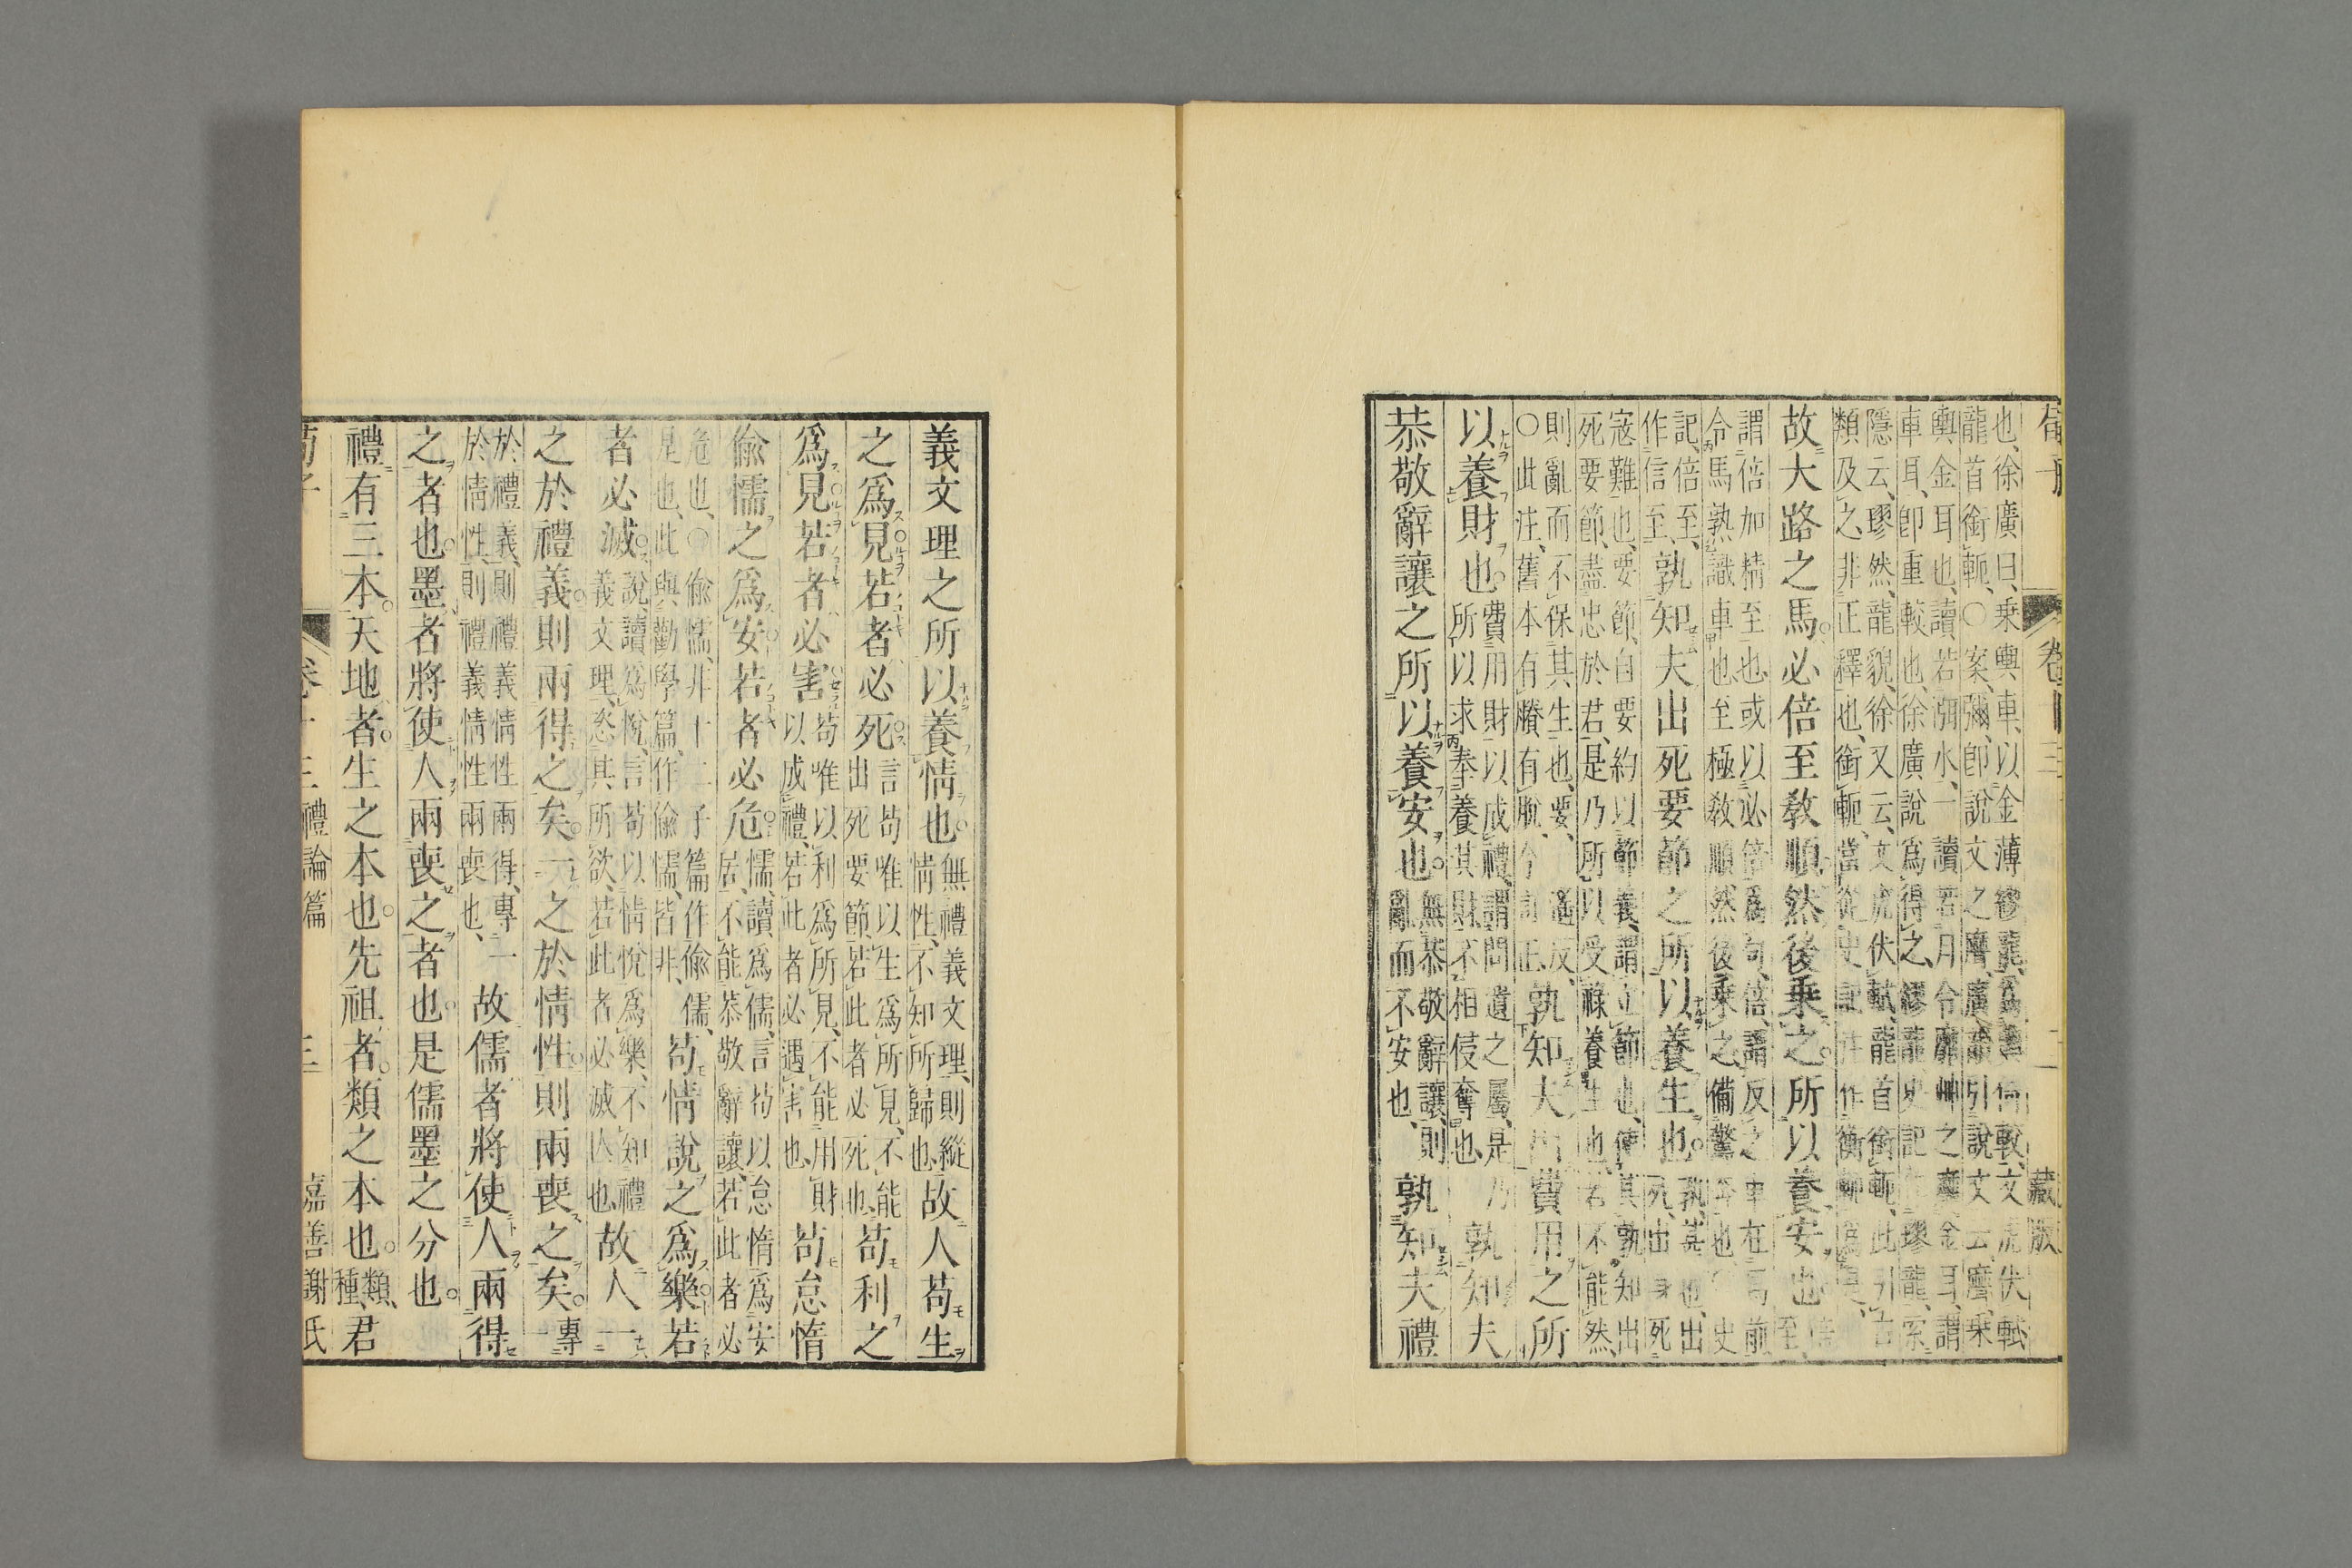 也、徐廣曰、乗輿車、以金薄繆龍、爲輿倚較、文虎伏軾
龍首銜軛、○案、彌、卽說文之𢣢、廣韻引說文云、𢣢、乗
輿金耳也、讀若渳水、一讀若月令靡艸之靡、金耳、謂
車耳、卽重較也、徐廣說爲得之、繆龍、史記作璆龍、索
隱云、璆然、龍貌、徐又云、文虎伏軾、龍首銜軛、此引古
類及之、非正釋也、銜軛、當從史記注作衡軛爲是、
故大路之馬必倍至敎順。然後乗之。所以養安也
謂倍加精至也、或以必倍爲句、倍、謂反之、車在馬前
令馬孰識車也、至極敎順然後乗之、備驚奔也、史
記、倍至、作信至、孰知夫出死要節之所以養生也。孰、甚也、出死、出身死
寇難也、要節、自要約以節義、謂立節也、使其孰知出
死要節、盡忠於君、是乃所以受祿養生也、若不能然、
則亂而不保其生也、要、
○此注、舊本有賸有脫、今訂正、孰知夫出費用之所
以養財也。費用財以成禮、謂問遺之屬、是乃所以求奉養其財、不相侵奪也、孰知夫
恭敬辭讓之所以養安也。無恭敬辭讓、則亂而不安也、孰知夫禮
卷十三
二
藏版
義文理之所以養情也。無禮義文理、則縱情性、不知所歸也、故人苟生
之爲見若者必死。言苟唯以生爲所見、不能出死要節、若此者必死也、苟利之
爲見若者必害。苟唯以利爲所見、不能用財以成禮、若此者必遇害也、苟怠惰
偸懦之爲安若者必危。懦、讀爲儒、言苟以怠惰爲安居、不能恭敬辭讓、若此者必
危也、○偸懦、非十二子篇作偸儒、是也、此與勸學篇、作偸懦、皆非、苟情說之爲樂若
者必滅。說、讀爲悅、言苟以情悅爲樂、不知禮義文理、恣其所欲、若此者必滅亾也、故人一
之於禮義。則兩得之矣。一之於情性。則兩喪之矣。專一
於禮義、則禮義情性兩得、專一於情性、則禮義情性兩喪也、故儒者將使人兩得
之者也。墨者將使人兩喪之者也。是儒墨之分也。
禮有三本。天地者。生之本也。先祖者。類之本也。類、種、君
荀子
卷十三禮論篇
三
嘉善謝氏